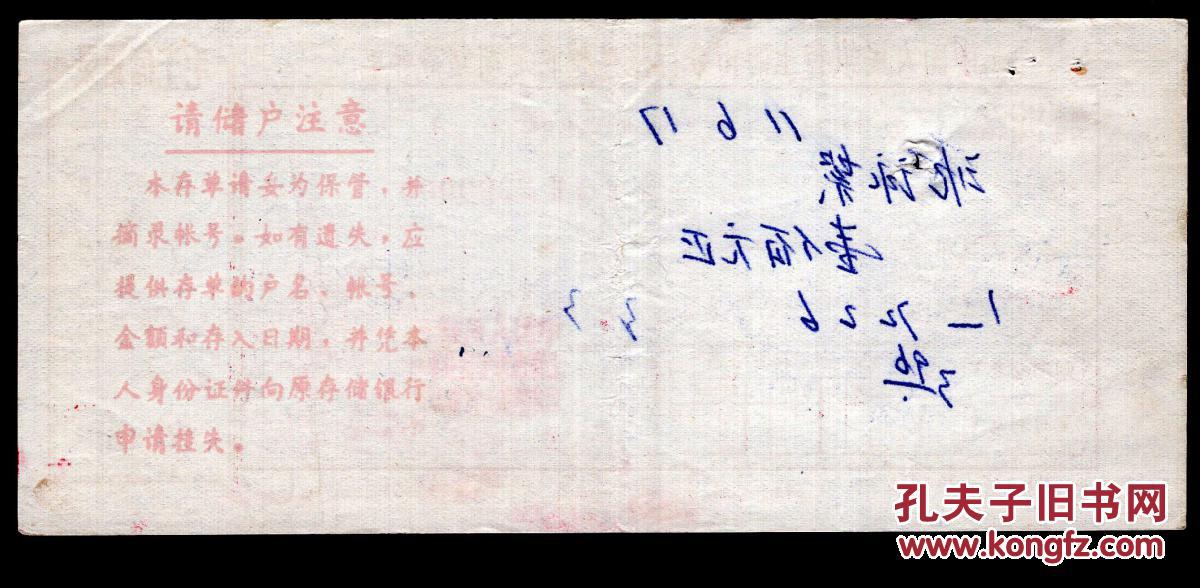 请储户注意
本存单请妥为保管，并
摘录帐号。如有遗失，应
提供存单的户名、帐号、
金额和存入日期，并凭本
人身份证件向原存储银行
申请挂失。
11 6 17
壹佰元正
孔夫子旧书网
www.kongfz.com